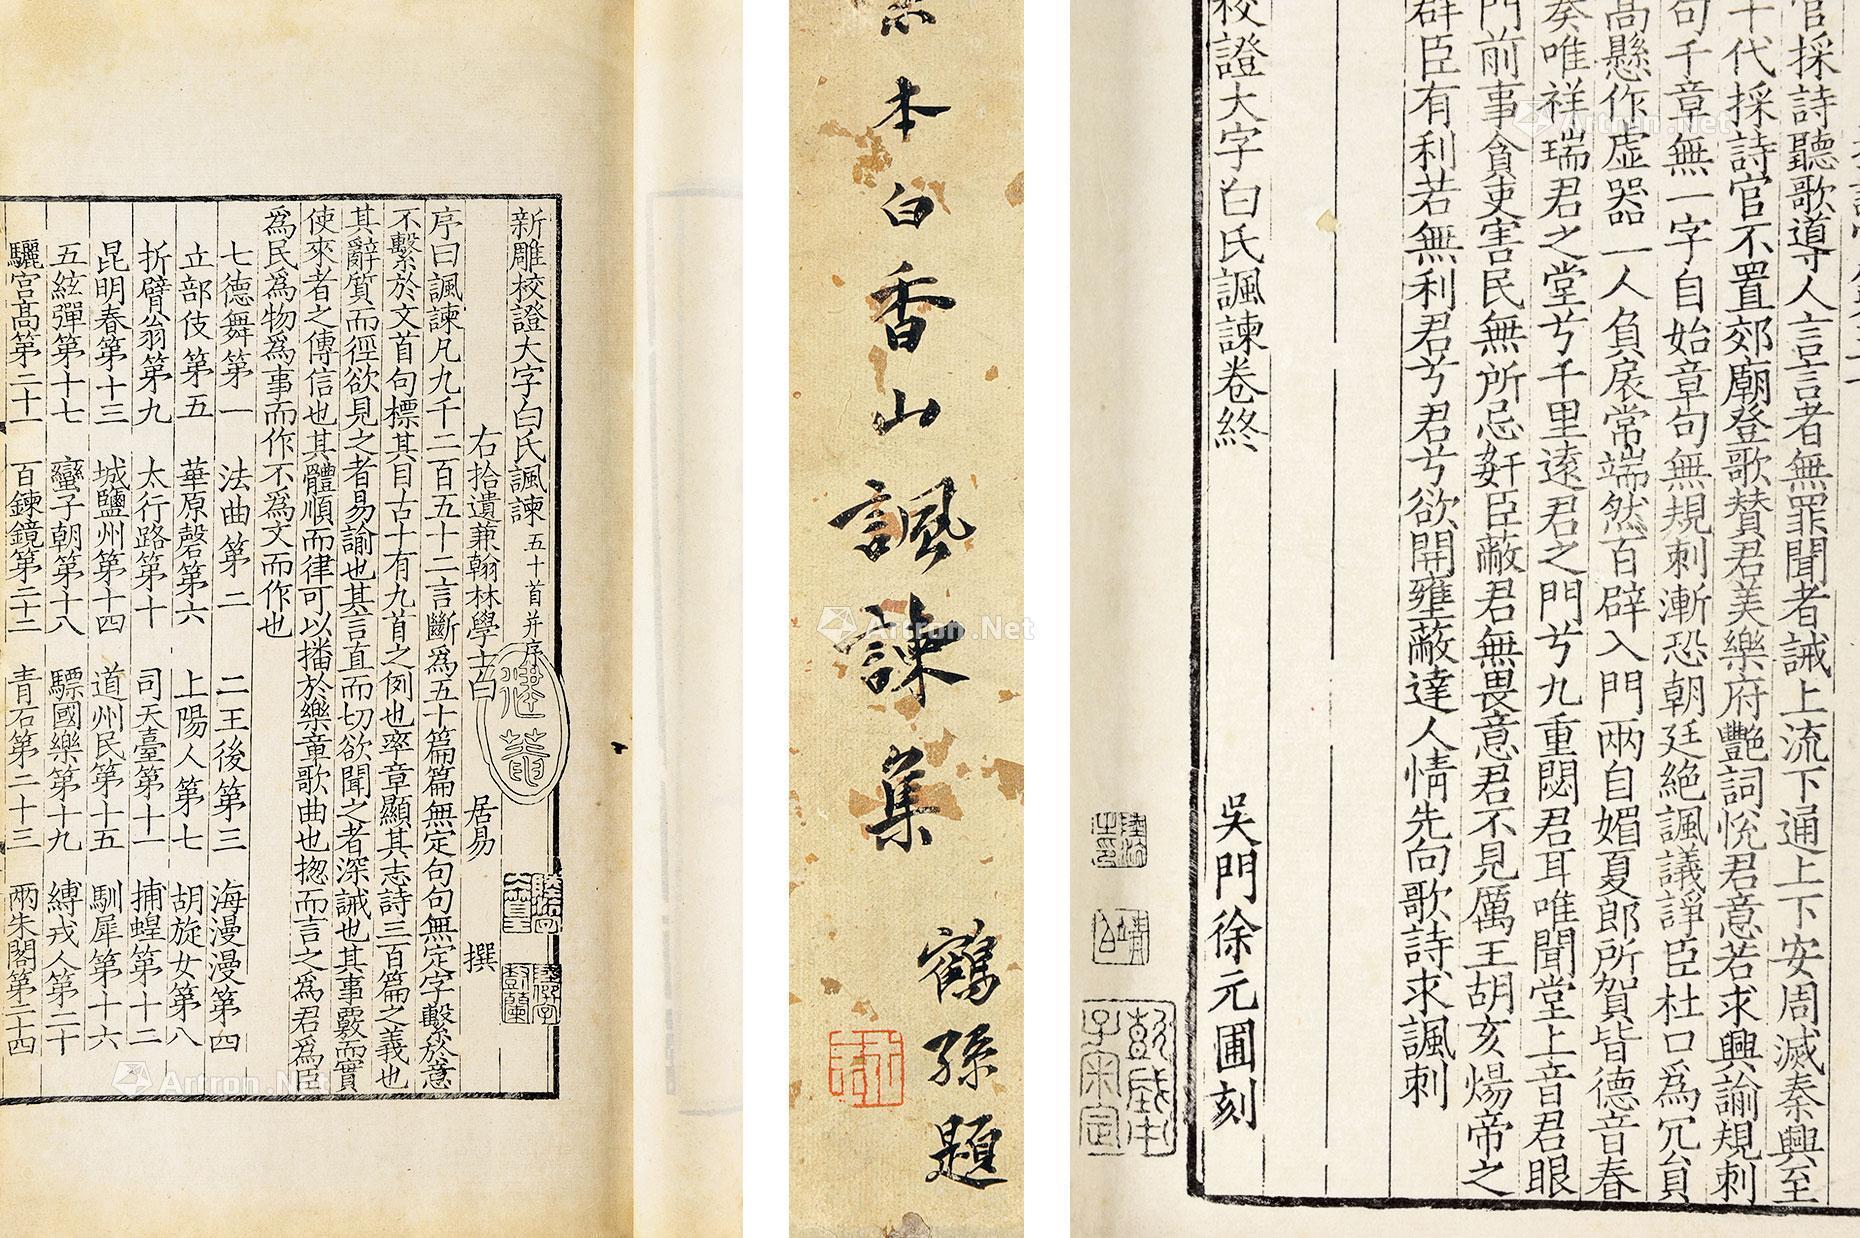 新雕校證大字白氏諷諫五十首并序
右拾遺兼翰林學士白居易撰
序曰諷諫凡九千二百五十二言斷為五十篇篇無定句句無定字繫於意
不繫於文首句標其目古十有九首之例也率章顯其志詩三百篇之義也
其辭質而徑欲見之者易諭也其言直而切欲聞之者深誡也其事覈而實
使來者之傳信也其體順而律可以播於樂章歌曲也揔而言之為君為臣
為民為物為事而作不為文而作也
七德舞第一 法曲第二 二王後第三 海漫漫第四
立部伎第五 華原磬第六 上陽人第七 胡旋女第八
折臂翁第九 太行路第十 司天臺第十一 捕蝗第十二
昆明春第十三 城鹽州第十四 道州民第十五 馴犀第十六
五絃彈第十七 蠻子朝第十八 驃國樂第十九 縛戎人第二十
驪宮髙第二十一 百鍊鏡第二十二 青石第二十三 兩朱閣第二十四
本白香山諷諫集
鶴孫題
官採詩聽歌導人言言者無罪聞者誡上流下通上下安周滅秦興至
十代採詩官不置郊廟登歌賛君美樂府艷詞恱君意若求興諭規刺
句千章無一字自始章句無規刺漸恐朝廷絶諷議諍臣杜口為冗貟
髙懸作虛器一人負扆常端然百辟入門兩自媚夏郎所賀皆德音春
奏唯祥瑞君之堂兮千里逺君之門兮九重閟君耳唯聞堂上音君眼
門前事貪吏害民無所忌姧臣蔽君無畏意君不見厲王胡亥煬帝之
群臣有利若無利君兮君兮欲開壅蔽達人情先向歌詩求諷刺
校證大字白氏諷諫卷終 吳門徐元圃刻